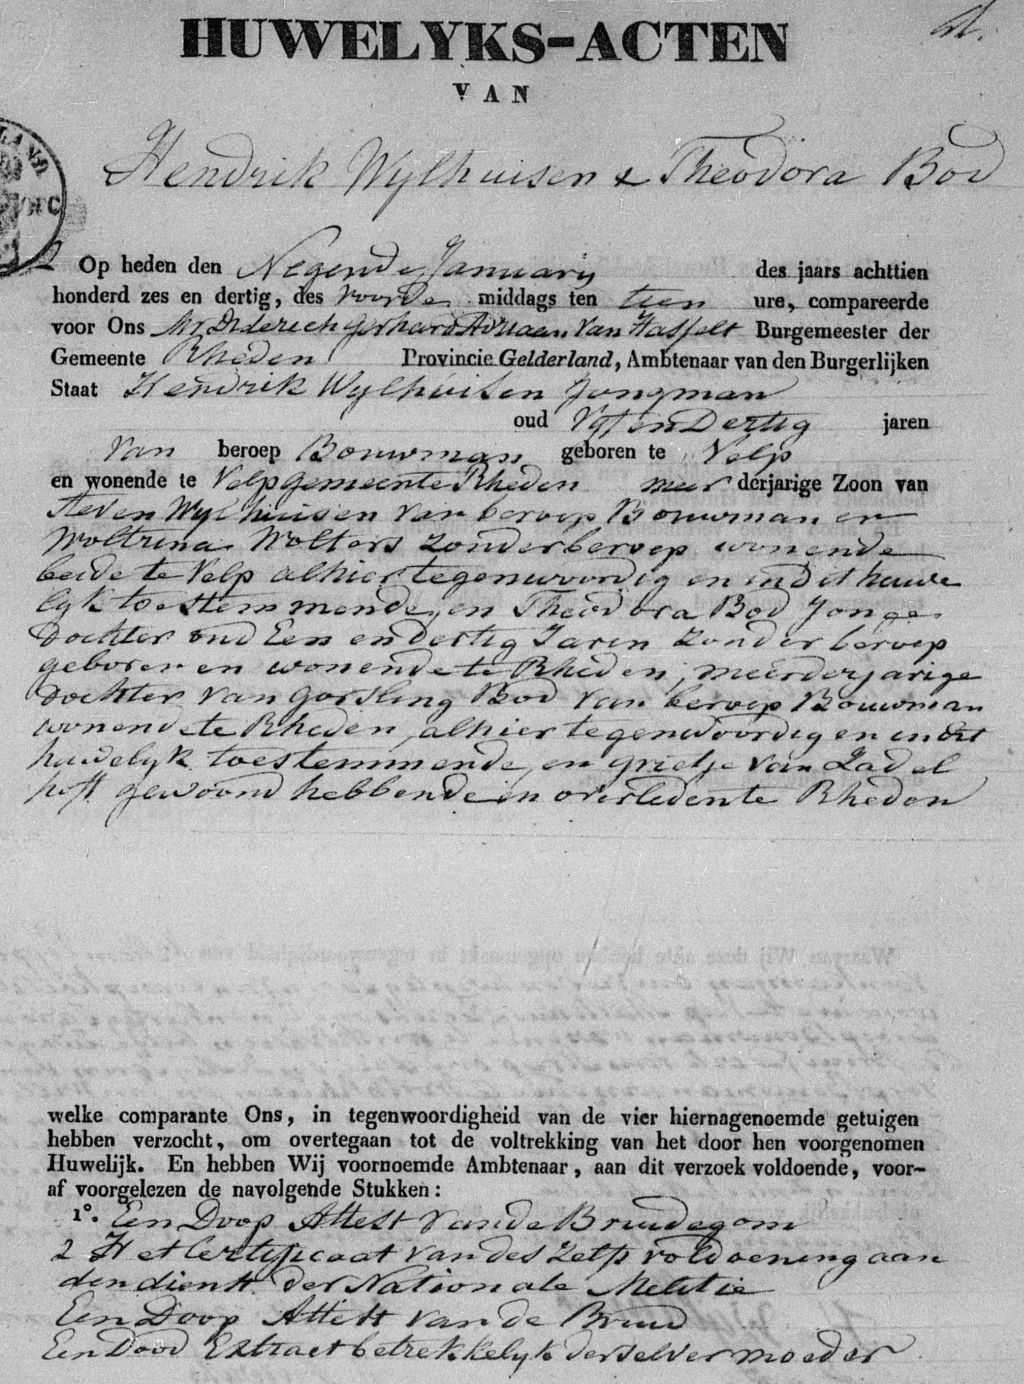 HUWELYKS-ACTEN
VAN
Hendrik Wylhuisen & Theodora Bod
Op heden den Negende January des jaars achttien
honderd zes en dertig, des voorde middags ten tien ure, compareerde
voor Ons Mr Diderich Gerhard Adriaan Van Hasselt Burgemeester der
Gemeente Rheden Provincie Gelderland, Ambtenaar van den Burgerlijken
Staat Hendrik Wylhuisen Jongman
oud Vyf en Dertig jaren
Van beroep Bouwman geboren te Velp
en wonende te Velp gemeente Rheden meer derjarige Zoon van
Steven Wylhuisen Van beroep Bouwman en
Woltrina Wolters zonder beroep wonende
beide te Velp alhier tegenwoordig en in dit huwe
lyk toestemmende, en Theodora Bod Jonge
Dochter oud Een en dertig Jaren zonder beroep
geboren en wonende te Rheden, meerderjarige
Dochter Van Gorsling Bod Van beroep Bouwman
wonende te Rheden, alhier tegenwoordig en in dit
huwelyk toestemmende, en Grietje Van Zadel
hoff gewoond hebbende en overleden te Rheden
welke comparante Ons, in tegenwoordigheid van de vier hiernagenoemde getuigen
hebben verzocht, om overtegaan tot de voltrekking van het door hen voorgenomen
Huwelijk. En hebben Wij voornoemde Ambtenaar, aan dit verzoek voldoende, voor-
af voorgelezen de navolgende Stukken:
1°. Een Doop Attest Van de Bruidegom
2 Het Certificaat Van des Zelfs voldoening aan
den dienst der Nationale Melitie
Een Doop Attest Van de Bruid
Een Dood Extract betrekkelyk derselver moeder